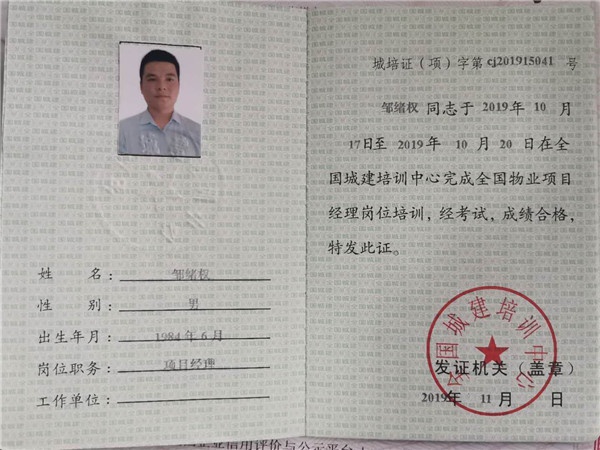 姓 名： 邹绪权
性 别： 男
出生年月： 1984年6月
岗位职务： 项目经理
工作单位：
城培证（项）字第cj201915041 号
邹绪权 同志于 2019年 10 月
17日至 2019年 10 月 20 日在全
国城建培训中心完成全国物业项目
经理岗位培训，经考试，成绩合格，
特发此证。
全国城建培训中心
发证机关（盖章）
2019年 11月 日
业信用评价与公示平台